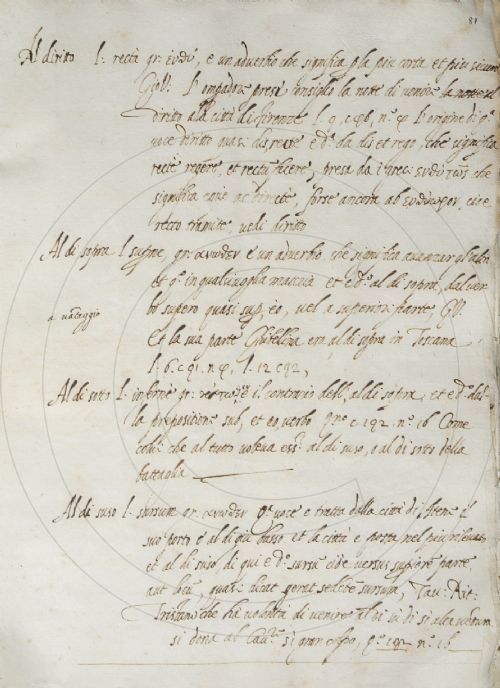 81
Al diritto l: rectà gr: ευθύ, è un adverbio che significa p la piu corta et piu sicura
Gio: V: l'ompadore prese consiglio la notte di venire
diritto alla città di firenze l. 9, c. 46, n.
voce diritto quasi disrecte è d.a da dis et rego, che significa
recte regere, et rectu facere, presa da i Greci che
significa cioè ac directè, forse ancora ab cioè
recto tramite, vedi diritto
Al di sopra l. supme, gr: ανωθεν è un adverbio, che significa avanzar gl'altri
et in qualunque et è d.o al di sopra, dal ver
bo supero quasi sup, eo, vel a superiori parte, G.V:
a vantaggio
Et la sua parte Ghibellina era al di sopra in Toscana
l. 6. c. 91. n. l. 12 c 92,
Al di sotto l: infernè gr: è il contrario dell'al di sopra, et è d.o dal
la prepositione sub, et eo verbo c. 192 n.o 16 Come
colui che al tutto voleva ess.r al di suso, o al di sotto della
battaglia
Al di suso l. sursum gr: ανωθεν voce è tratta dalla città di Atene il
suo porto è al di giù basso et la città è posta nel più rilevato,
et al di suso di qui è d.o sursu cioè versus supiore parte
aut locu, quasi dicat sursum, Tav: Rit:
Tristano che ha volontà di venire al di si alta ventura
si dona al Cav.re si gran colpo, 192 n.o 16